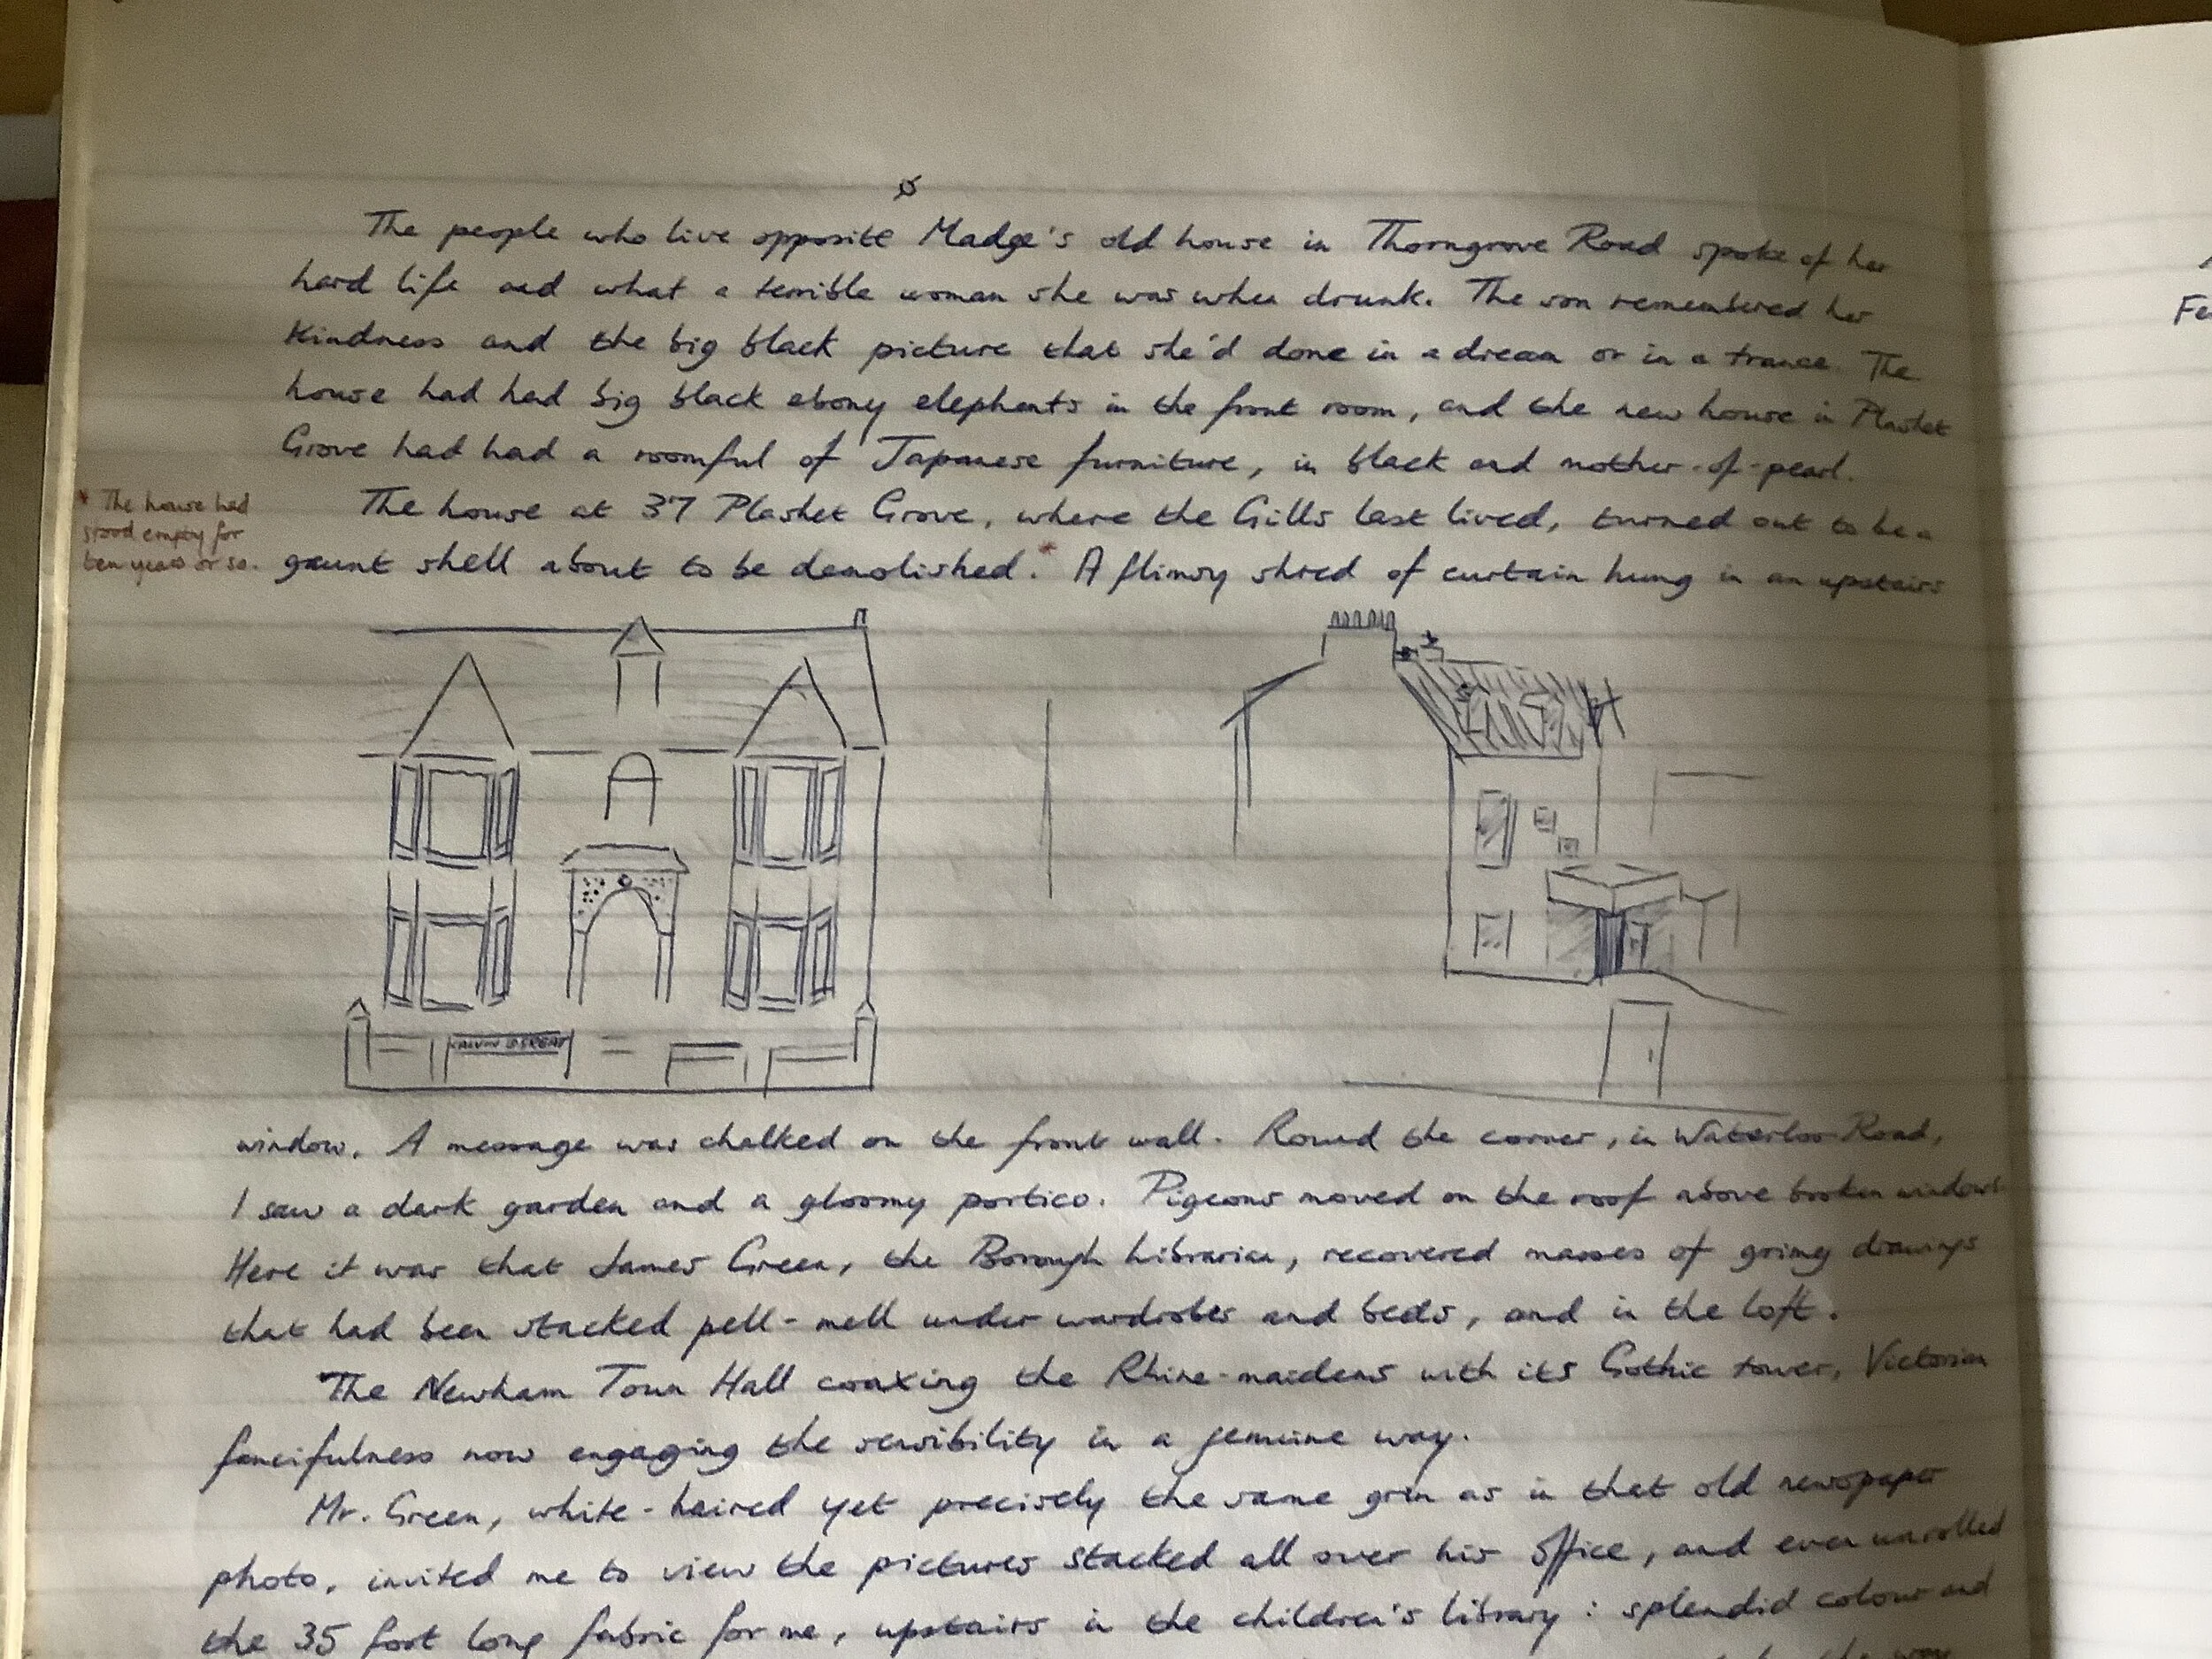 The people who live opposite Madge's old house in Thorngrove Road spoke of her
hard life and what a terrible woman she was when drunk. The son remembered her
kindness and the big black picture that she'd done in a dream or in a trance. The
house had had big black ebony elephants in the front room, and the new house in Plashet
Grove had had a roomful of Japanese furniture, in black and mother-of-pearl.
The house at 37 Plashet Grove, where the Gills last lived, turned out to be a
* The house had
stood empty for
ten years or so.
gaunt shell about to be demolished.* A flimsy shred of curtain hung in an upstairs
window. A message was chalked on the front wall. Round the corner, in Waterloo Road,
I saw a dark garden and a gloomy portico. Pigeons moved on the roof above broken windows.
Here it was that James Green, the Borough Librarian, recovered masses of grimy drawings
that had been stacked pell-mell under wardrobes and beds, and in the loft.
The Newham Town Hall coaxing the Rhine-maidens with its Gothic tower, Victorian
fancifulness now engaging the sensibility in a genuine way.
Mr. Green, white-haired yet precisely the same grin as in that old newspaper
photo, invited me to view the pictures stacked all over his office, and even unrolled
the 35 foot long fabric for me, upstairs in the children's library: splendid colour and
the way
Fe